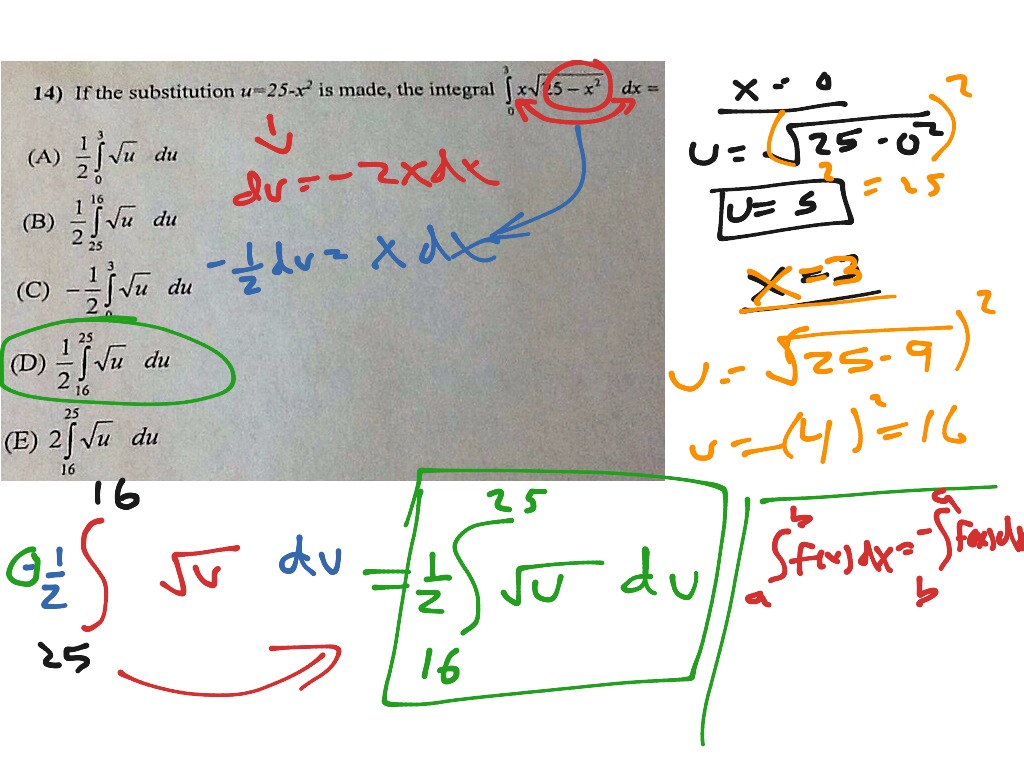 14) If the substitution u=25-x² is made, the integral ∫₀³ x√25 − x² dx =
(A) 1/2 ∫₀³ √u du
(B) 1/2 ∫₂₅¹⁶ √u du
(C) − 1/2 ∫₀³ √u du
(D) 1/2 ∫₁₆²⁵ √u du
(E) 2 ∫₁₆²⁵ √u du
du = - 2x dx
- 1/2 du = x dx
x = 0
u = (√25 - 0²)²
u = 5² = 25
x = 3
u = √25 - 9)²
u = (4)² = 16
- 1/2 ∫₂₅¹⁶ √u du = 1/2 ∫₁₆²⁵ √u du
∫ₐᵇ f(x) dx = - ∫_b^a f(x) dx